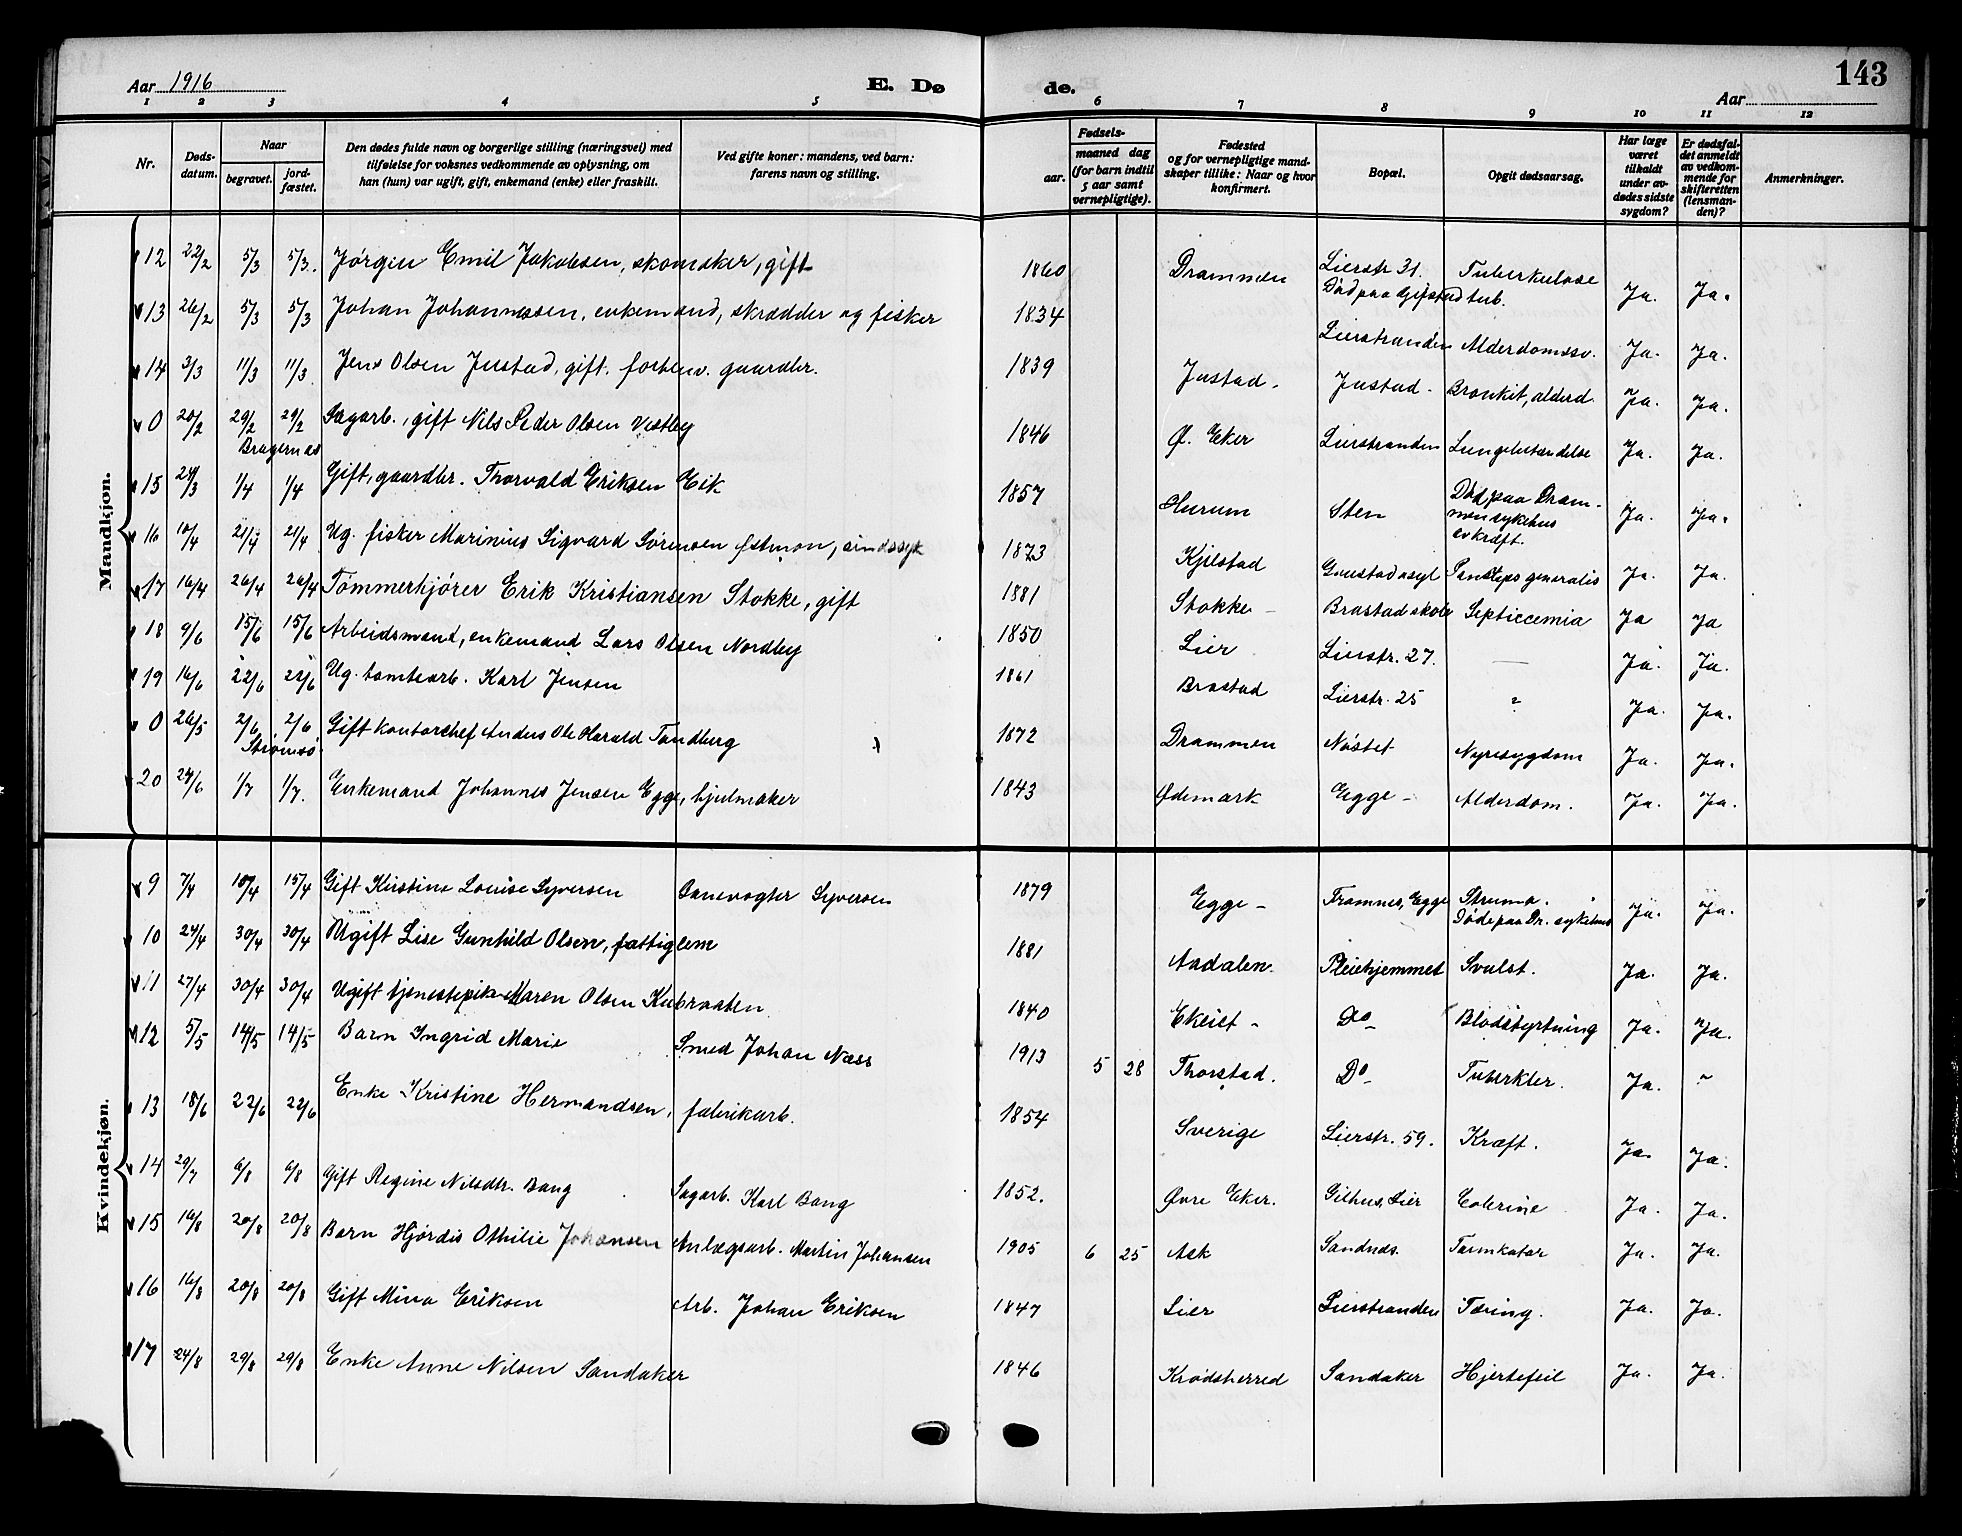 143
Aar 1916 E. Døde. Aar
1 2 3 4 5 6 7 8 9 10 11 12
Nr. Døds-datum. Naar begravet. jord-fæstet. Den dødes fulde navn og borgerlige stilling (næringsvei) med tilføielse for voksnes vedkommende av oplysning, om han (hun) var ugift, gift, enkemand (enke) eller fraskilt. Ved gifte koner: mandens, ved barn: farens navn og stilling. Fødsels- aar. maaned dag (for barn indtil 5 aar samt vernepligtige). Fødested og for vernepligtige mand-skaper tillike: Naar og hvor konfirmert. Bopæl. Opgit dødsaarsag. Har læge været tilkaldt under av-dødes sidste sygdom? Er dødsfal-det anmeldt av vedkom-mende for skifteretten (lensman-den)? Anmerkninger.
Mandkjøn.
12 22/2 5/3 5/3. Jørgen Emil Jakobsen, skomaker, gift 1860 Drammen Lierstr 31. Død paa Gifstad Tuberkulose tub. Ja. Ja.
13 26/2 5/3 5/3 Johan Johannessen, enkemand, skrædder og fisker 1834 Lierstranden Alderdomssv. Ja. Ja.
14 3/3 11/3 11/3 Jens Olsen Justad, gift, forhenv. gaardbr. 1839 Justad - Justad - Bronkit, alderd. Ja. Ja.
0 20/2 29/2 Bragernes 29/2 Sagarb., gift Nils Peder Olsen Vestby 1846 Ø. Eker Lierstranden Lungebetændelse Ja. Ja.
15 24/3 1/4 1/4 Gift, gaardbr. Thorvald Eriksen Eik 1857 Hurum Sten Død paa Dram-mens sykehus av kræft. Ja. Ja.
16 10/4 21/4 21/4 Ug. fisker Marinius Sigvard Sørensen sindssyk 1873 Kjelstad Gaustad asyl generalis Ja. Ja.
17 16/4 26/4 26/4 Tømmerkjører Erik Kristiansen Stokke, gift 1881 Stokke - Brastad skole Septiccemia Ja Ja
18 9/6 15/6 15/6 Arbeidsmand, enkemand Lars Olsen Nordby 1850 Lier Lierstr. 27. — Ja. Ja.
19 16/6 22/6 22/6 Ug. tomtearb. Karl Jensen 1861 Brastad Lierstr. 25 " Ja. Ja.
0 26/5 2/6 Strømsø 2/6 Gift kontorchef Anders Ole Harald Tandberg 1872 Drammen Nøstet Nyresygdom Ja. Ja.
20 24/6 1/7 1/7. Enkemand Johannes Jensen Egge, hjulmaker 1843 Ødemark Egge - Alderdom. Ja. Ja.
Kvindekjøn.
9 7/4 15/4 Gift Kirstine Louise Syversen Banevogter Syversen 1879 Egge - Framnes, Egge Struma. Døde paa Dr. sykehus Ja. Ja.
10 24/4 30/4 30/4 Ugift Lise Gunhild Olsen, fattiglem 1881 Aadalen. Pleiehjemmet Svulst. Ja. Ja.
11 27/4 30/4 30/4 Ugift tjenestepike Maren Olsen Kubraaten 1840 Ekeiet - Do Blodstyrtning Ja. Ja.
12 5/5 14/5 14/5 Barn Ingrid Marie Smed Johan Næss 1913 5 28 Thorstad. Do Tuberkler. Ja. ~
13 18/6 22/6 22/6 Enke Kristine Hermandsen, fabrikarb. 1854 Sverige Lierstr. 59. Kræft. Ja. Ja.
14 29/7 6/8 6/8 Gift Regine Nilsdtr. Bang Sagarb. Karl Bang 1852. Øvre Eker. Gilhus, Lier Colerine Ja. Ja.
15 16/8 20/8 20/8 Barn Hjørdis Othilie Johansen Anlægsarb. Martin Johansen 1905 6 25 Ask Sandnes. Tarmkatar Ja. Ja.
16 16/8 20/8 20/8 Gift Mina Eriksen Arb. Johan Eriksen 1847 Lier Lierstranden Tæring. Ja. Ja.
17 24/8 29/8 29/8 Enke Anne Nilsen Sandaker 1846 Krødsherred Sandaker Hjertefeil Ja. Ja.